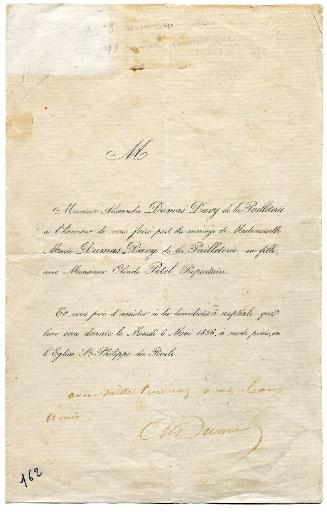 M
Monsieur Alexandre Dumas Davy de la Pailleterie
a l'honneur de vous faire part du mariage de Mademoiselle
Marie Dumas Davy de la Pailleterie, sa fille,
avec Monsieur Olinde Petel Propriétaire.
Et vous prie d'assister à la bénédiction nuptiale qui
leur sera donnée le Mardi 6 Mai 1856, à midi précis, en
l'Eglise St Philippe du Roule
avec mille à mes bons
amis
Dumas
162